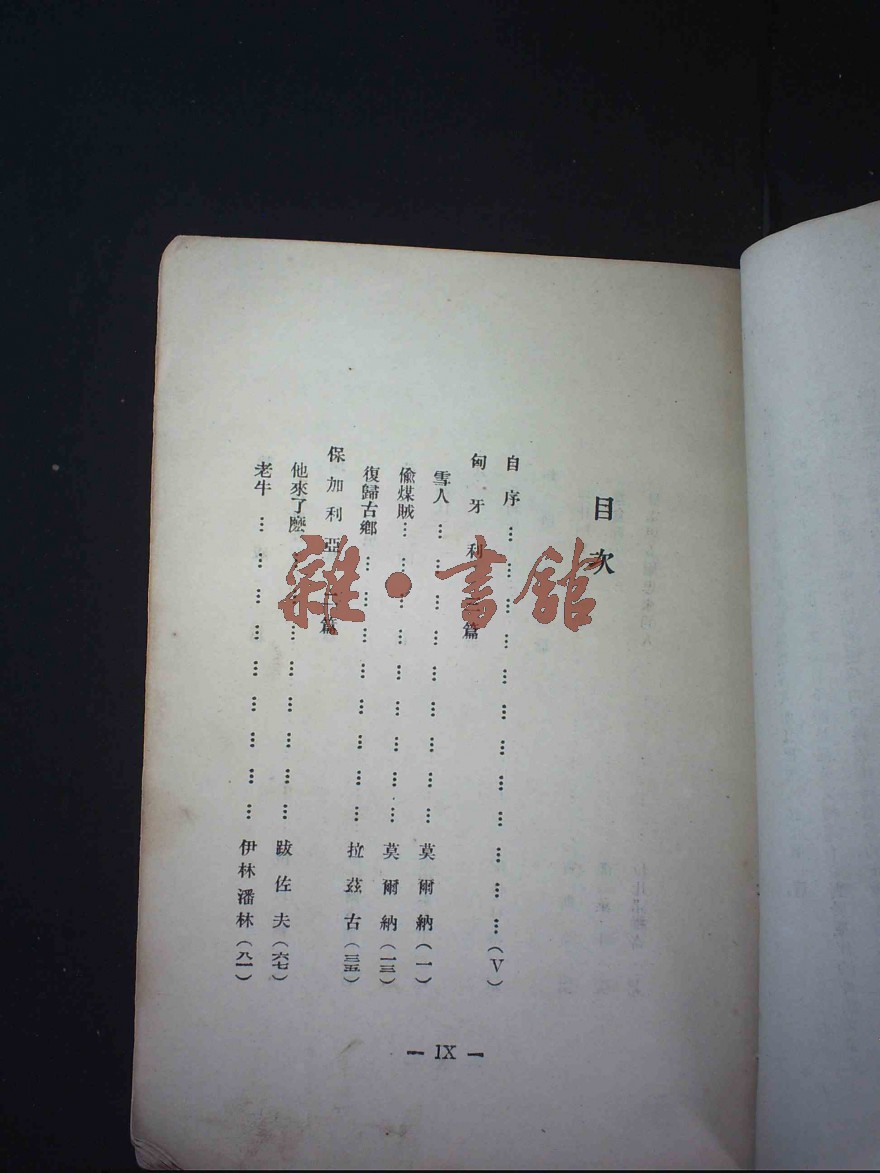 目次
自序………………………………(V)
匈牙利三篇
雪人…………………………莫爾納(一)
偷煤賊…………………………莫爾納(一三)
復歸古鄉…………………………拉茲古(三五)
保加利亞二篇
他來了麽…………………………跋佐夫(六七)
老牛…………………………伊林潘林(八一)
— IX —
雜·書館